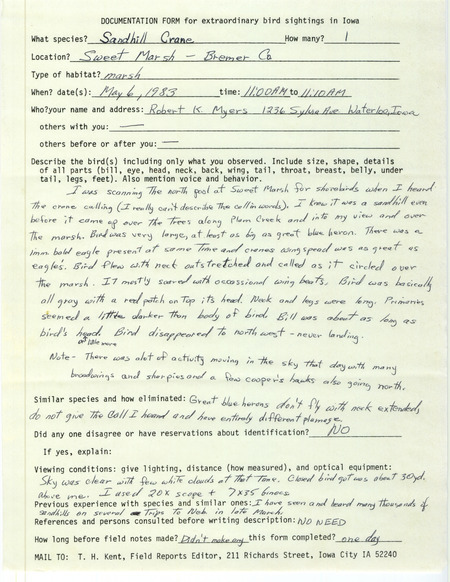 DOCUMENTATION FORM for extraordinary bird sightings in Iowa
What species? Sandhill Crane How many? 1
Location? Sweet Marsh - Bremer Co
Type of habitat? marsh
When? date(s): May 6, 1983 time: 11:00AM to 11:10AM
Who? your name and address: Robert K. Myers 1236 Sylvia Ave Waterloo, Iowa
others with you: —
others before or after you: —
Describe the bird(s) including only what you observed. Include size, shape, details
of all parts (bill, eye, head, neck, back, wing, tail, throat, breast, belly, under
tail, legs, feet). Also mention voice and behavior.
I was scanning the north pool at Sweet Marsh for shorebirds when I heard
the crane calling (I really can't describe the call in words). I knew it was a sandhill even
before it came up over the trees along Plum Creek and into my view and over
the marsh. Bird was very large, at least as big as great blue heron. There was a
Imm bald eagle present at same time and cranes wingspread was as great as
eagles. Bird flew with neck outstretched and called as it circled over
the marsh. It mostly soared with occassional wing beats. Bird was basically
all gray with a red patch on top its head. Neck and legs were long. Primaries
seemed a little darker than body of bird. Bill was about as long as
bird's head or little more. Bird disappeared to north west - never landing.
Note - There was alot of activity moving in the sky that day with many
broadwings and sharpies and a few cooper's hawks also going north.
Similar species and how eliminated: Great blue herons don't fly with neck extended,
do not give the call I heard and have entirely different plumage.
Did any one disagree or have reservations about identification? NO
If yes, explain:
Viewing conditions: give lighting, distance (how measured), and optical equipment:
Sky was clear with few white clouds at that time. Closest bird got was about 30yd.
above me. I used 20x scope + 7x35 binocs
Previous experience with species and similar ones: I have seen and heard many thousands of
sandhills on several trips to Neb. in late March.
References and persons consulted before writing description: NO NEED
How long before field notes made? Didn't make any this form completed? one day
MAIL TO: T. H. Kent, Field Reports Editor, 211 Richards Street, Iowa City IA 52240